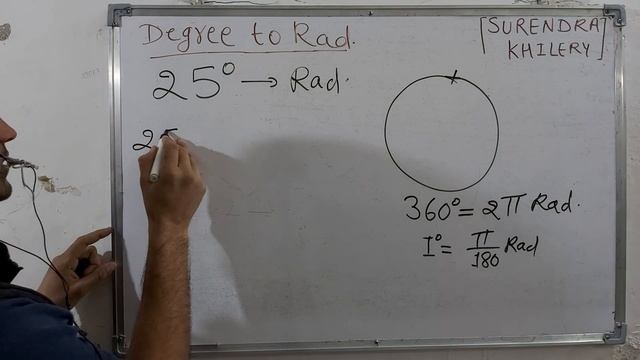 Degree to Rad.
[SURENDRA
KHILERY]
25° → Rad.
25
360° = 2π Rad.
1° = π/180 Rad